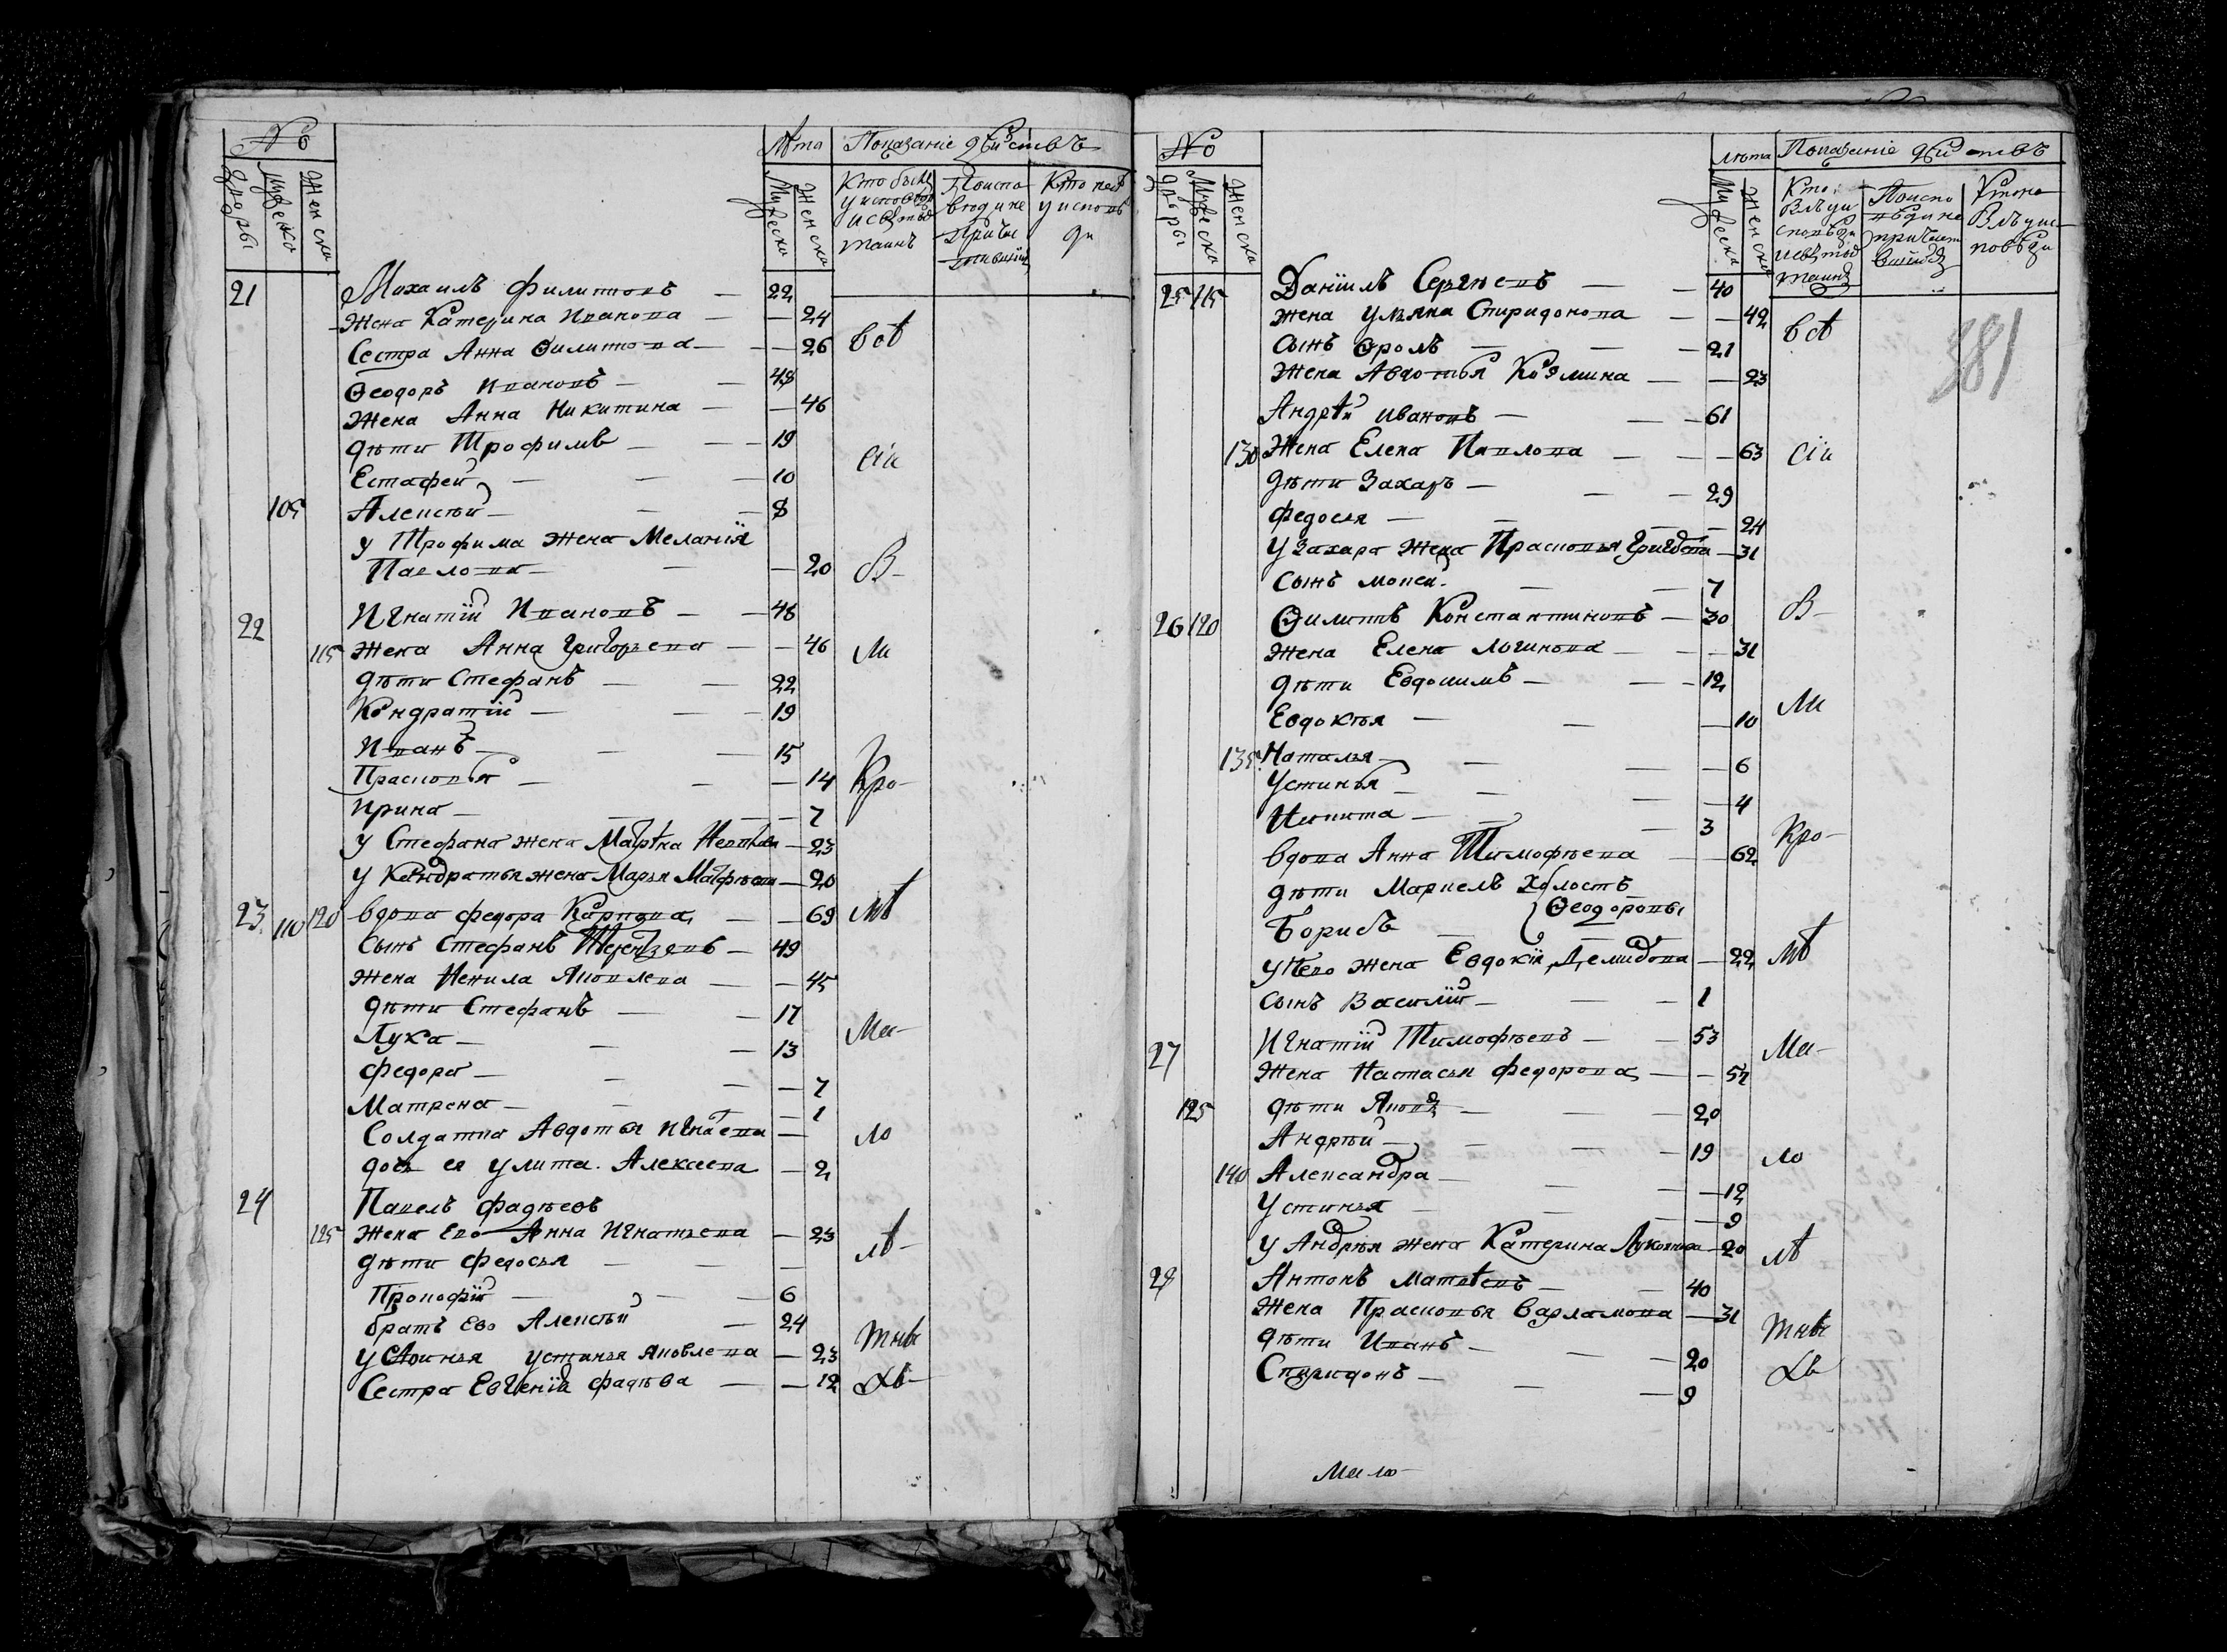 №
Лѣта Показаніе дѣйствъ
дворы
Мужеска
Женска
Мужеска
Женска
Кто былъ
у исповѣди
и свѣтыхъ
таинъ
Кто не б
у исповѣ
ди
21 Михаилъ Филиповъ — 22
жена Катерина Иванова — 24
Сестра Анна Ѳилипова — 26 всѣ
Ѳеодоръ Ивановъ — 48
жена Анна Никитина — 46
дѣти Трофимъ — 19
сіи
Естафей — 10
105 Алексѣй — 8
у Трофима жена Меланія
Павлова — 20 в
22 Игнатій Ивановъ — 48
115 жена Анна Григорьева — 46 ли
дѣти Стефанъ — 22
Кондратій — 19
Иванъ — 15
Прасковья — 14 Кро
Ирина — 7
у Стефана жена — 23
у Кондратья жена Марья — 20
23 110 120 вдова Федора Карпова — 69 мѣ
Сынъ Стефанъ — 49
жена Ненила Яковлева — 45
дѣти Стефанъ — 17
Ма
Лука — 13
Федора — 7
Матрена — 1
Солдатка Авдотья —
ло
дочь ея Улита Алексеева — 2
24 Павелъ Фадѣевъ
125 жена его Анна Игнатьева — 23
лѣ
дѣти Федосья —
Прокофій — 6
братъ его Алексѣй — 24
тнѣ
Устинья Яковлева — 23
Сестра Евгенія Фадѣва — 12
№
лѣта Показаніе дѣйствъ
дворы
Мужеска
Женска
Мужеска
Женска
25 115 Даніилъ Сергѣевъ — 40
жена Ульяна Спиридонова — 42
всѣ
381
сынъ Ѳролъ — 21
жена Авдотья Козмина — 23
Андрѣй Ивановъ — 61
130 жена Елена Павлова — 63 сіи
дѣти Захаръ — 29
Федосья — 24
у Захара жена Прасковья — 31
сынъ Мопсей — 7
26 120 Ѳилипъ Константиновъ — 30 в
жена Елена Логинова — 31
дѣти Евдокимъ — 12
ли
Евдокья — 10
135 Наталья — 6
Устинья — 4
Никита — 3
Кро
вдова Анна Тимофѣева — 62
дѣти Маркелъ Холостъ
Ѳеодоровы
Борисъ
у него жена Евдокія Демидова — 22 мѣ
сынъ Василій — 1
27 Игнатій Тимофѣевъ — 53
Ма
жена Настасья Федорова — 52
125 дѣти Яковъ — 20
Андрѣй — 19
ло
140 Александра — 12
Устинья — 9
у Андрѣя жена Катерина — 20
лѣ
28 Антонъ Матвѣевъ — 40
жена Прасковья Варламова — 31
тнѣ
дѣти Иванъ — 20
Спиридонъ — 9
Мало